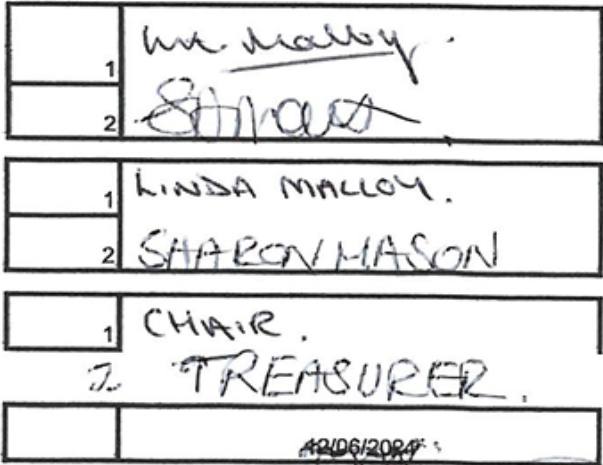 1 Malloy.
2
1 LINDA MALLOY.
2 SHARON MASON
1 CHAIR.
2 TREASURER.
12/06/2024